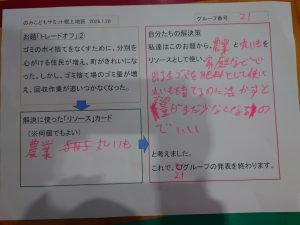 のみこどもサミット根上地区 2025.1.20
グループ番号 21
お題「トレードオフ」②
ゴミのポイ捨てをなくすために、分別を
心がける住民が増え、町がきれいになっ
た。しかし、ゴミ捨て場のゴミ量が増
え、回収作業が追いつかなくなった。
解決に使った「リソース」カード
(※何個でもよい)
農業 丸いも
自分たちの解決策
私達はこのお題から、農業と丸いもを
リソースとして使い、家庭などで
出るゴミを肥料として使い
丸いもを育てるのに活かすと
量がまだ少なくなるの
でいい
と考えました。
これで、21グループの発表を終わります。